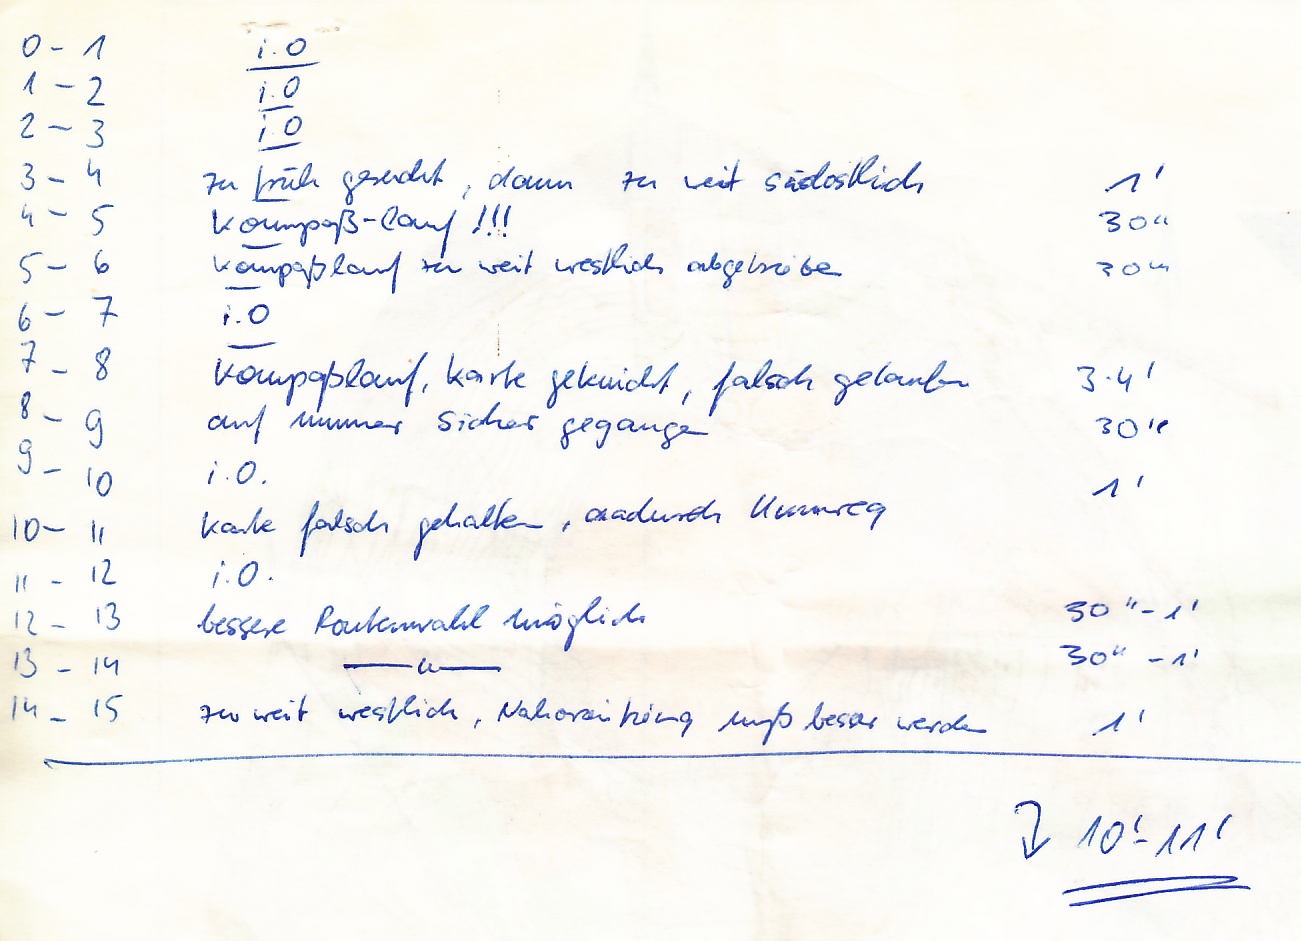 0 - 1 i.O
1 - 2 i.O
2 - 3 i.O
3 - 4 zu früh gesucht, dann zu weit südöstlich 1'
4 - 5 Kompaß-Lauf !!! 30"
5 - 6 Kompaßlauf zu weit westlich abgetrieben 30"
6 - 7 i.O
7 - 8 Kompaßlauf, Karte geknickt, falsch gelaufen 3-4'
8 - 9 auf nummer Sicher gegangen 30"
9 - 10 i.O. 1'
10 - 11 Karte falsch gehalten, dadurch Umweg
11 - 12 i.O.
12 - 13 bessere Routenwahl möglich 30" - 1'
13 - 14 —— " —— 30" - 1'
14 - 15 zu weit westlich, Nahorientierung muß besser werden 1'
10' - 11'